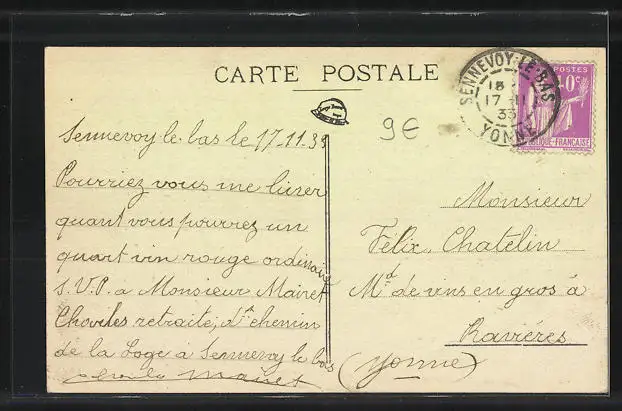 CARTE POSTALE
SENNEVOY-LE-BAS
17 - 11
33
YONNE
POSTES
40c
FRANÇAISE
9€
Sennevoy le bas le 17.11.33
Pourriez vous me livrer
quant vous pourrez un
quart vin rouge ordinaire
S.V.P. a Monsieur Mairet
Charles retraité, d'* chemin
de la Loge à Sennevoy le bas
Charles Mairet
Monsieur
Félix Chatelin
Md de vins en gros à
Ravières
(Yonne)